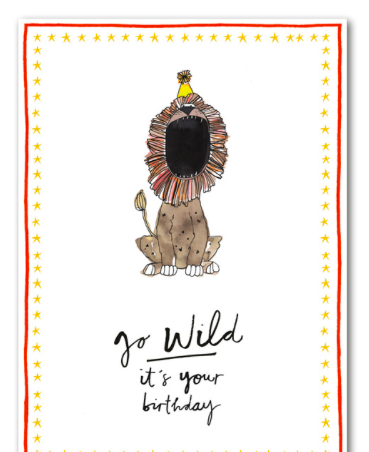 go Wild
it's your
birthday